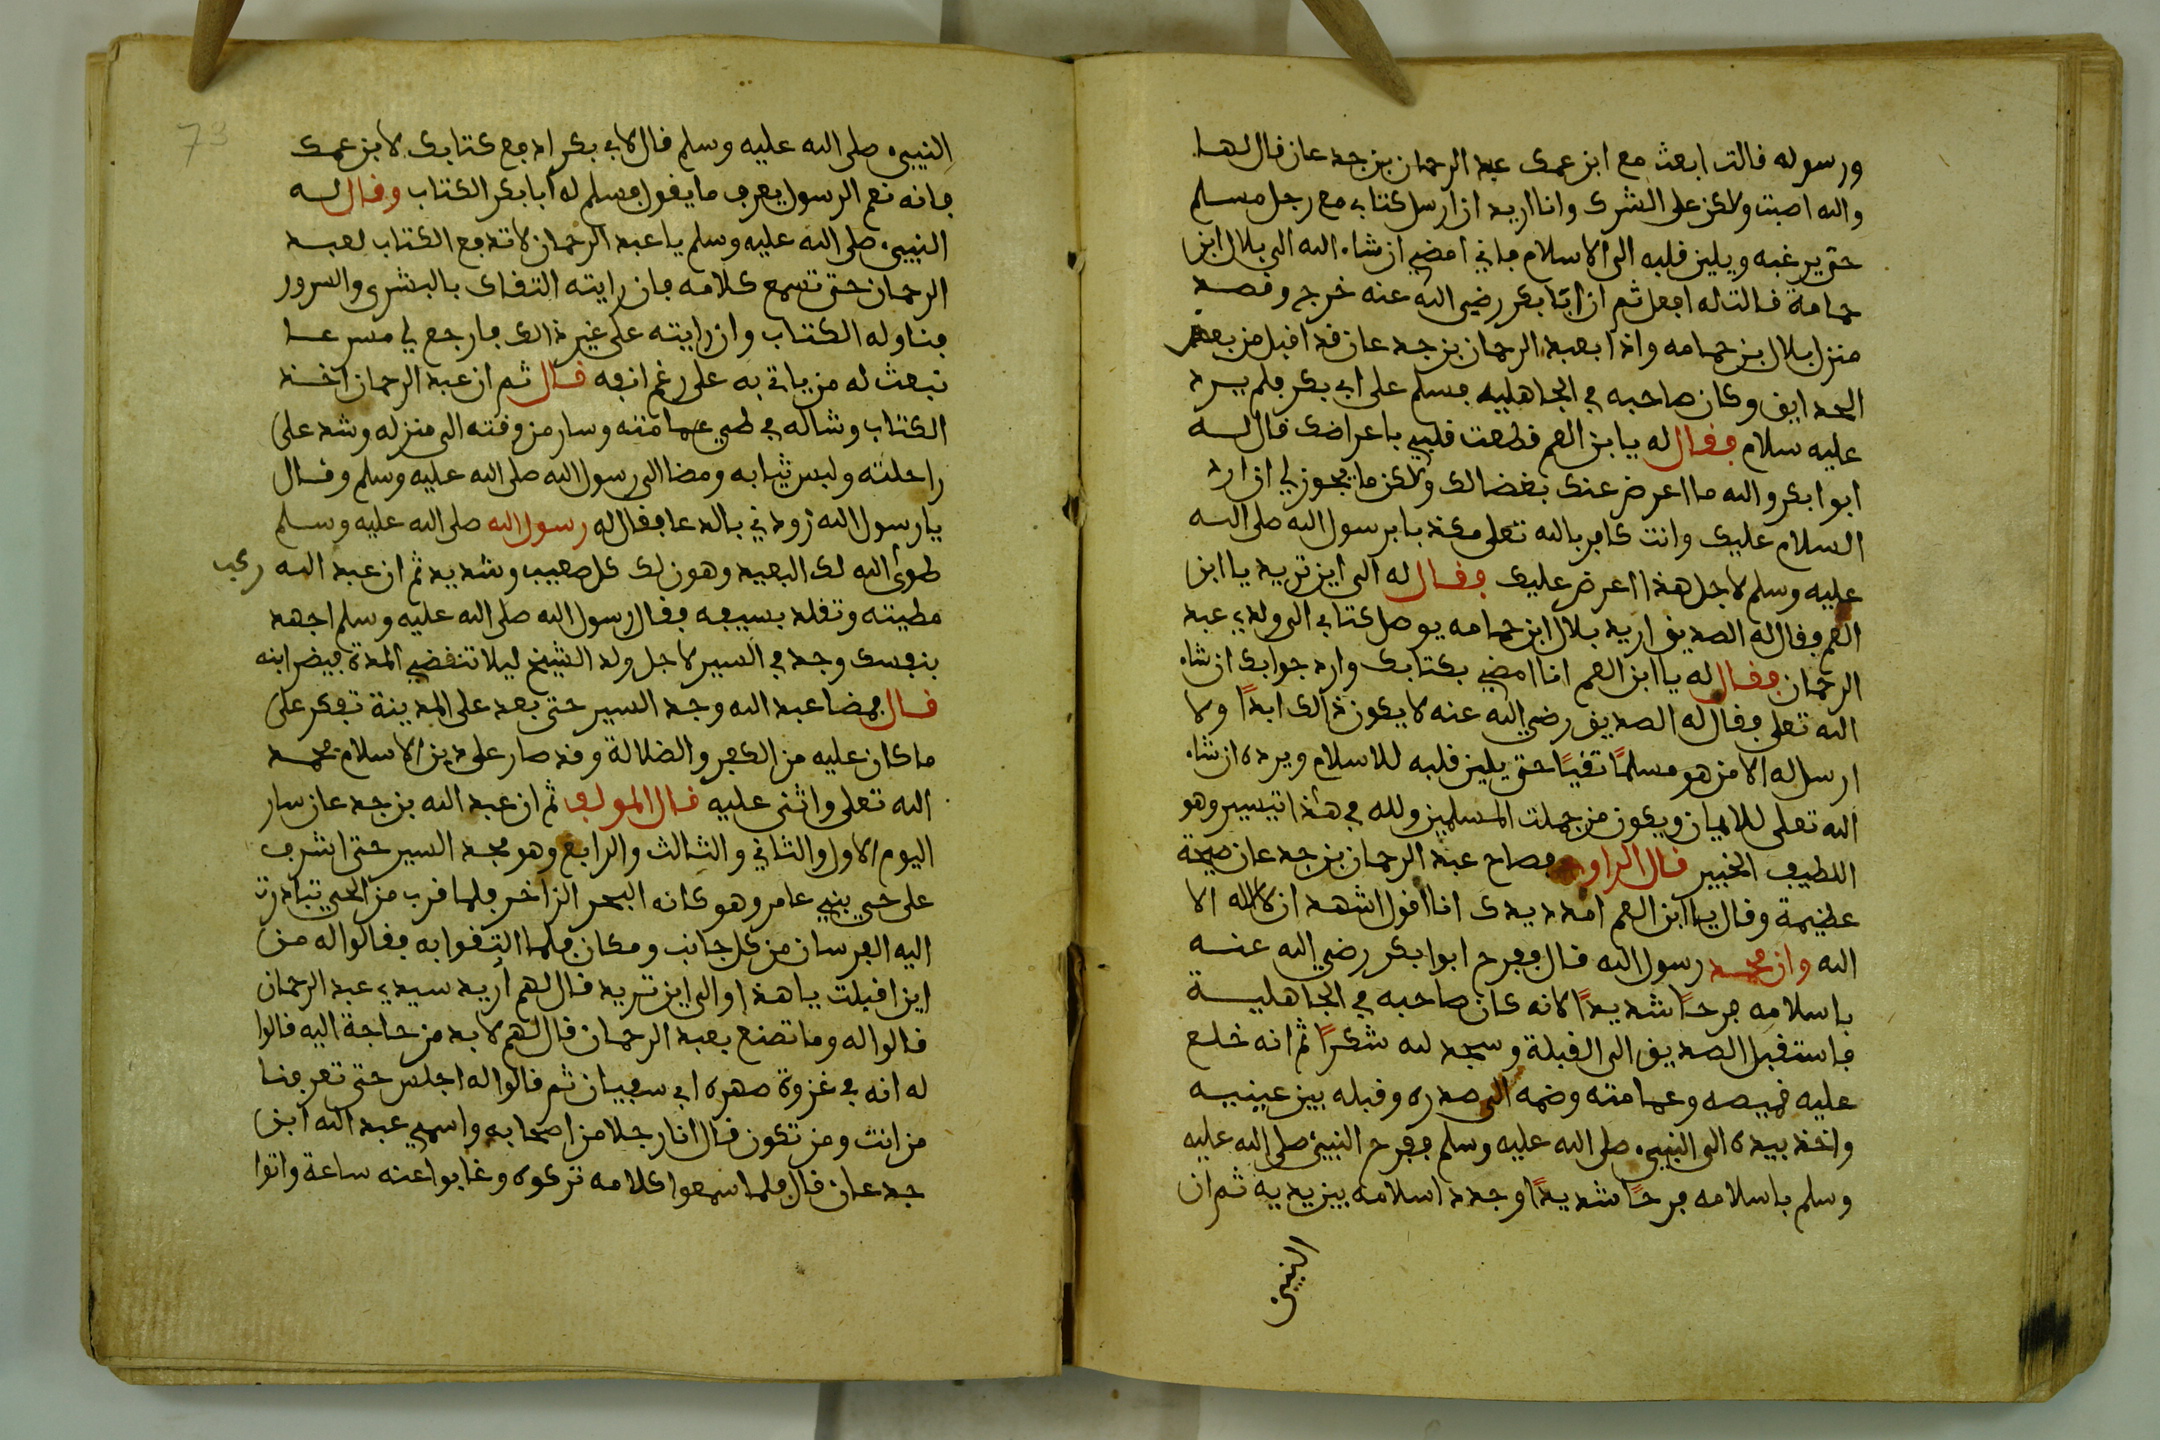 ورسوله فالت ابعث مع ابن عمك عبد الرحمان بن جدعان فال لها
والله اصبت ولاكن على الشرك وانا اريد ان ارسل كتابي مع رجل مسلم
حتى يرغبه ويلين فلبه الى الاسلام باني امضي ان شاء الله الى بلال ابن
حمامة فالت له افعل ثم ان ابا بكر رضي الله عنه خرج وفصد
منزل بلال بن حمامه واذا بعبد الرحمان بن جدعان فد افبل من بعض
الحدايق وكان صاحبه في الجاهليه فسلم على ابي بكر فلم يرد
عليه سلام ففال له يا بن العم فطعت فلبي باعراضك فال له
ابوا بكر والله ما اعرض عنك بغضا لك ولاكن ما يجوز لي ان ارد
السلام عليك وانت كافر بالله تعلى مكذبا برسول الله صلى الله
عليه وسلم لاجل هذا اعرض عليك ففال له الى اين تريد يا ابن
العم وفال له الصديق اريد بلال ابن حمامه يوصل كتابي الى ولدي عبد
الرحمان ففال له يا ابن العم انا امضي بكتابك وارد جوابك ان شاء
الله تعلى ففال له الصديق رضي الله عنه لا يكون ذالك ابدًا ولا
ارسل له الا من هو مسلمًا تفيًا حتى يلين فلبه للاسلام ويرده ان شاء
الله تعلى للايمان ويكون من جملت المسلمين ولله في هذا تيسير وهو
اللطيف الخبير فال الراوي فصاح عبد الرحمان بن جدعان صيحة
عظيمة وفال يا ابن العم امدد يدك انا افول اشهد ان لا اله الا
الله وان محمد رسول الله فال ففرح ابوا بكر رضي الله عنه
باسلامه فرحًا شديدًا لانه كان صاحبه في الجاهلية
فاستفبل الصديق الى الفبلة وسجد لله شكرًا ثم انه خلع
عليه فميصه وعمامته وضمه الى صدره وفبله بين عينيه
واخذ بيده الى النبيء صلى الله عليه وسلم ففرح النبيء صلى الله عليه
وسلم باسلامه فرحًا شديدًا وجدد اسلامه بين يديه ثم ان
النبيء
73
النبيء صلى الله عليه وسلم فال لابي بكر ادفع كتابك لابن عمك
فانه نعم الرسول يعرف ما يفول فسلم له ابا بكر الكتاب وفال له
النبيء صلى الله عليه وسلم يا عبد الرحمان لا تدفع الكتاب لعبد
الرحمان حتى تسمع كلامه فان رايته التفاك بالبشرى والسرور
فناوله الكتاب وان رايته على غير ذالك فارجع لي مسرعا
نبعث له من ياتي به على رغم انفه فال ثم ان عبد الرحمان اخذ
الكتاب وشاله في طي عمامته وسار من وفته الى منزله وشد على
راحلته ولبس ثيابه ومضا الى رسول الله صلى الله عليه وسلم وفال
يا رسول الله زودني بالدعا ففال له رسول الله صلى الله عليه وسلم
طوى الله لك البعيد وهون لك كل صعيب وشديد ثم ان عبد الله ركب
مطيته وتفلد بسيفه ففال رسول الله صلى الله عليه وسلم اجهد
بنفسك وجد في السير لاجل ولد الشيخ ليلا تنفضي المدة فيضر ابنه
فال فمضا عبد الله وجد السير حتى بعد على المدينة تفكر على
ما كان عليه من الكفر والضلالة وفد صار على دين الاسلام فحمد
الله تعلى واثنى عليه فال المولف ثم ان عبد الله بن جدعان سار
اليوم الاول والثاني والثالث والرابع وهو مجد السير حتى اشرف
على حي بني عامر وهو كانه البحر الزاخر فلما فرب من الحي تبادرت
اليه الفرسان من كل جانب ومكان فلما التفوا به ففالوا له من
اين افبلت يا هذا والى اين تريد فال لهم اريد سيدي عبد الرحمان
فالوا له وما تصنع بعبد الرحمان فال لهم لا بد من حاجة اليه فالوا
له انه في غزوة صهره ابي سفيان ثم فالوا له اجلس حتى تعرفنا
من انت ومن تكون فال انا رجلا من اصحابه واسمي عبد الله ابن
جدعان فال فلما سمعوا كلامه تركوه وغابوا عنه ساعة واتوا